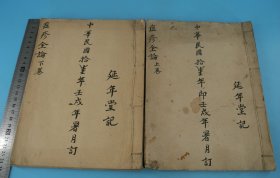 延年堂記
中華民國拾壹年即壬戌年暑月訂
痘疹全論上卷
延年堂記
中華民國拾壹年壬戌年暑月訂
痘疹全論下卷